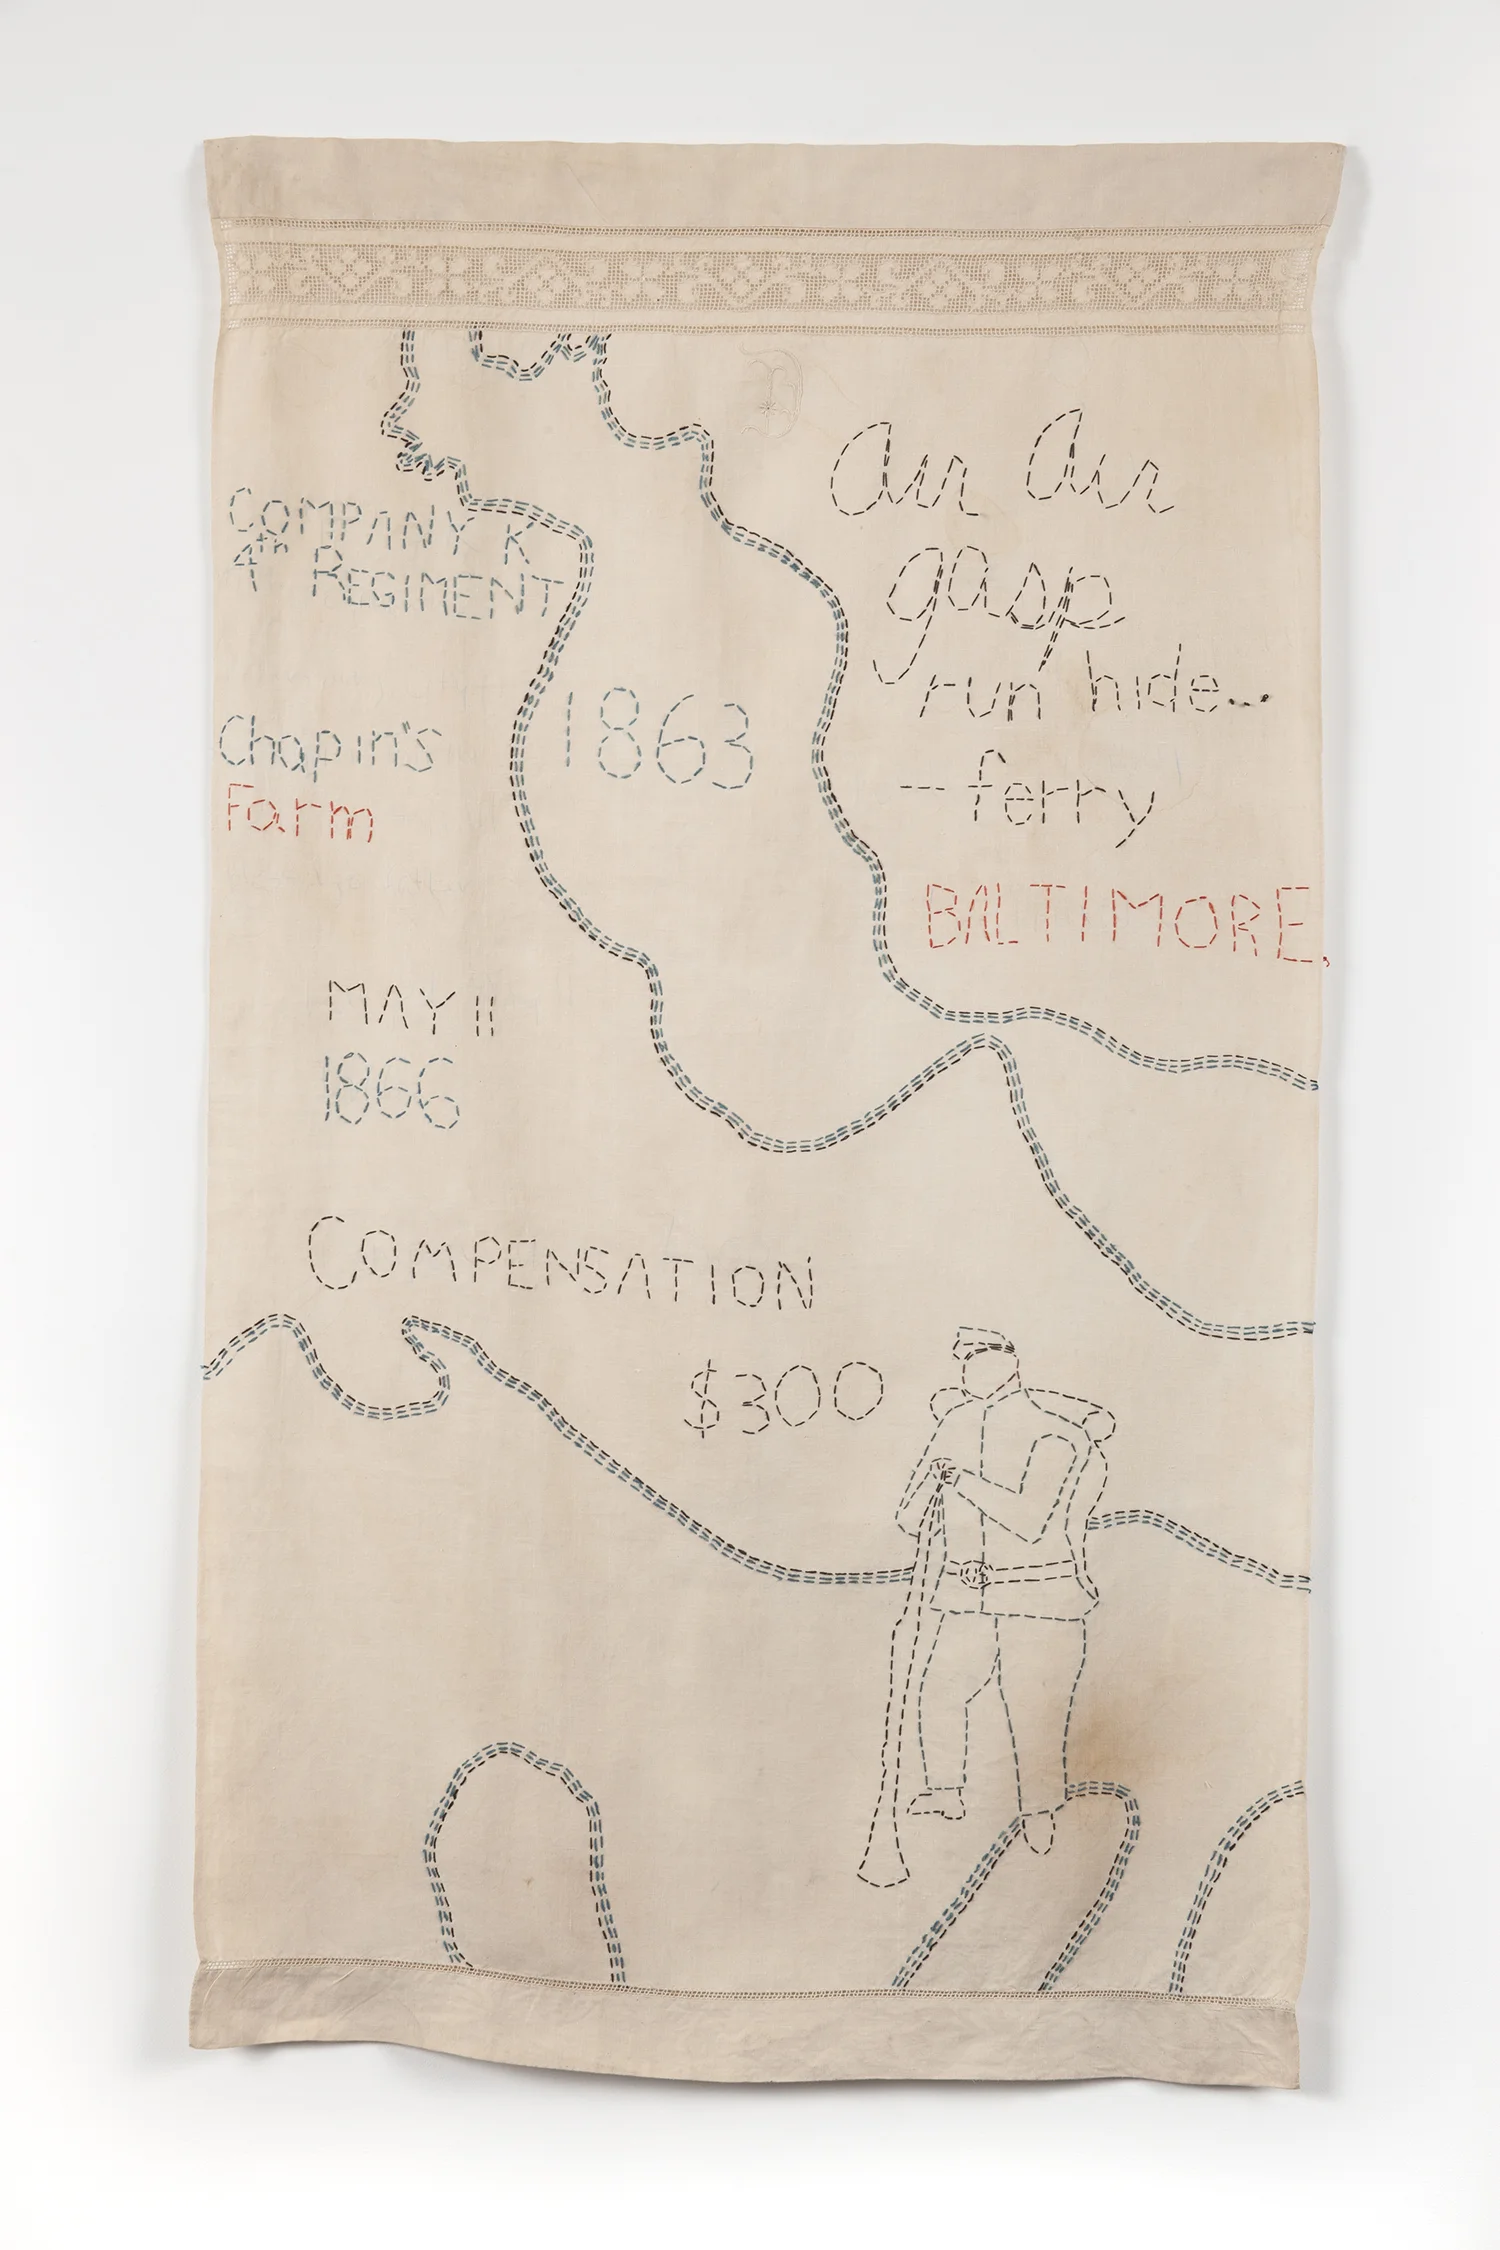 D
COMPANY K
4th REGIMENT
1863
Chapin's
Farm
MAY 11
1866
air air
gasp
run hide...
—ferry
BALTIMORE,
COMPENSATION
$300